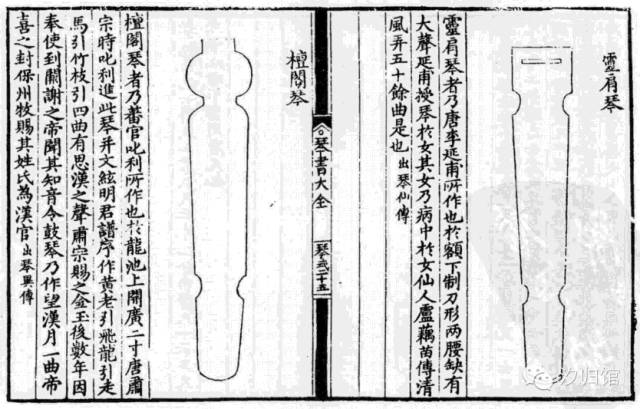 靈肩琴
靈肩琴者乃唐李延甫所作也於額下制刀形两腰缺有
大聲延甫授琴於女其女乃病中於女仙人盧藕苗傳清
風弄五十餘曲是也 出琴仙傳
琴書大全
檀閣琴
檀閣琴者乃蕃官叱利所作也於龍池上開廣二寸唐肅
宗時叱利進此琴并文絃明君譜序作黃老引飛龍引走
馬引竹枝引四曲有思漢之聲肅宗賜之金玉後數年因
奉使到闕謝之帝聞其知音令鼓琴乃作望漢月一曲帝
喜之封保州牧賜其姓氏為漢官 出琴異傳
汐归馆